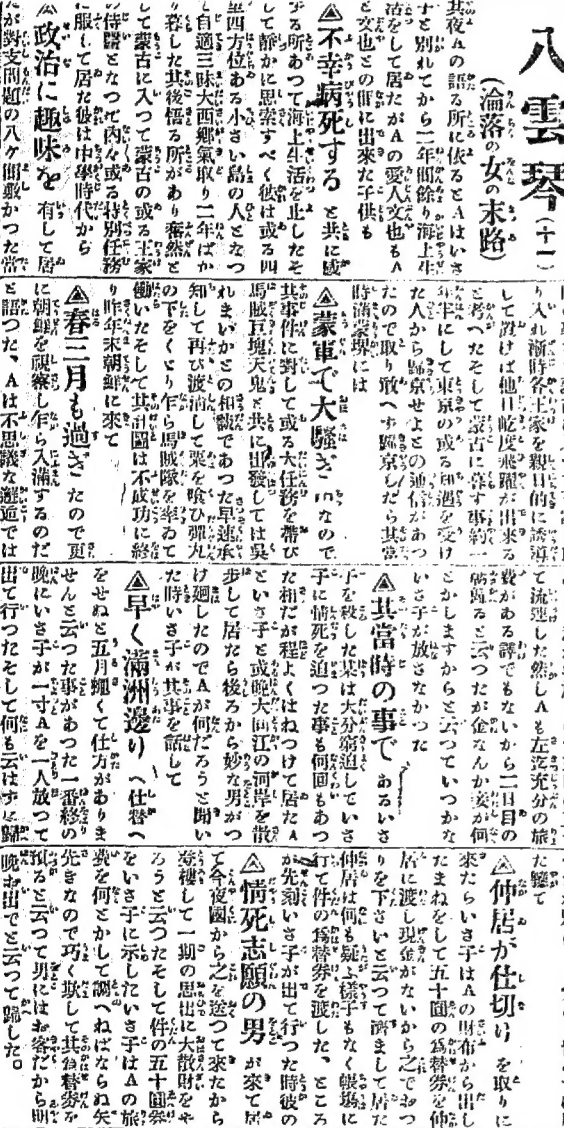 八雲琴(十一)
(淪落の女の末路)
其夜Aの語る所に依るとAはいさ
子と別れてから二年間餘り海上生
活をして居たがAの愛人文也もA
と文也との間に出來た子供も
▲不幸病死する と共に感
ずる所あつて海上生活を止したそ
して靜かに思索すべく彼は或る四
里四方位ある小さい島の人となつ
て自適三昧大西郷氣取り二年ばか
り暮した其後悟る所があり奮然と
して蒙古に入つて蒙古の或る王家
の侍醫となつて内々或る特別任務
に服して居た彼は中學時代から
▲政治に趣味を 有して居
たが對支問題の八ケ間敷かつた當
り入れ漸時各王家を親日的に誘導
して置けば他日屹度飛躍が出來る
と考へたそして蒙古に暮す事約一
年半にして東京の或る知遇を受け
た人から歸京せよとの通信があつ
たので取り敢へず歸京したら其當
時滿蒙界には
▲蒙軍で大騒ぎ なので
其事件に對して或る大任務を帶び
馬賊巨塊天鬼と共に出發しては呉
れまいかとの相談であつた早速承
知して再び渡滿して粟を喰ひ彈丸
の下をくゞり乍ら馬賊隊を率ゐて
働いたそして其計圖は不成功に終
り昨年末朝鮮に來て
▲春三月も過ぎ たので更
に朝鮮を視察し乍ら入滿するのだ
と語つた、Aは不思議な邂逅では
て流連した然しAも左迄充分の旅
費がある譯でもないから二日目の
朝歸ると云つたが金なんか妾が何
とかしますからと云つていつかな
いさ子が放さなかつた
▲其當時の事で あるいさ
子を殺した某は大分窮迫していさ
子に情死を迫つた事も何回もあつ
た相だが程よくはねつけて居たA
といさ子と或晩大同江の河岸を散
歩して居たら後ろから妙な男がつ
け廻したのでAが何だろうと聞い
た時いさ子が其事を話して
▲早く滿洲邊り へ仕替へ
をせぬと五月蠅くて仕方がありま
せんと云つた事があつた一番終の
晩にいさ子が一寸Aを一人放つて
出て行つたそして何も云はずに歸
た軈て
▲仲居が仕切り を取りに
來たらいさ子はAの財布から出し
たまねをして五十圓の爲替券を仲
居に渡し現金がないから之でおつ
りを下さいと云つて濟まして居た
仲居は何も疑ふ樣子もなく帳場に
行て件の爲替券を渡した、ところ
が先刻いさ子が出て行つた時彼の
▲情死志願の男 が來て居
て今夜國から之を送つて來たから
登樓して一期の思出に大散財をや
ろうと云つたそして件の五十圓券
をいさ子に示したいさ子はAの旅
費を何とかして調へねばならぬ矢
先きなので巧く欺して其爲替券を
預ると云つて男にはお客だから明
晩お出でと云つて歸した。